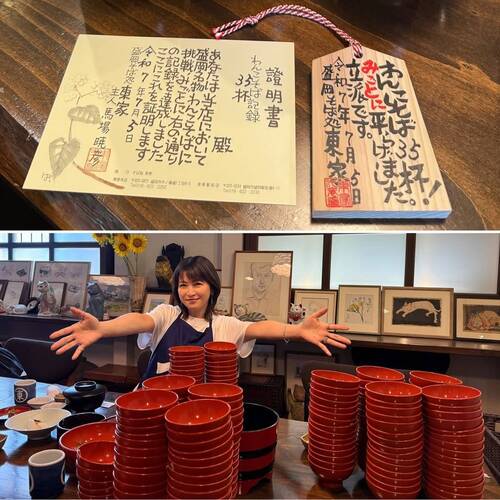 證明書
わんこそば記録
35杯
殿
あなたは当店において
盛岡名物わんこそばに
挑戦みごとに右の通り
の記録を達成しました
ここにこれを証明します
令和7年7月5日
盛岡そば処 東家
主人 馬場暁彦
わんこそば35杯!
みごとに平げました。
立派です。
令和7年7月5日
盛岡そば処 東家